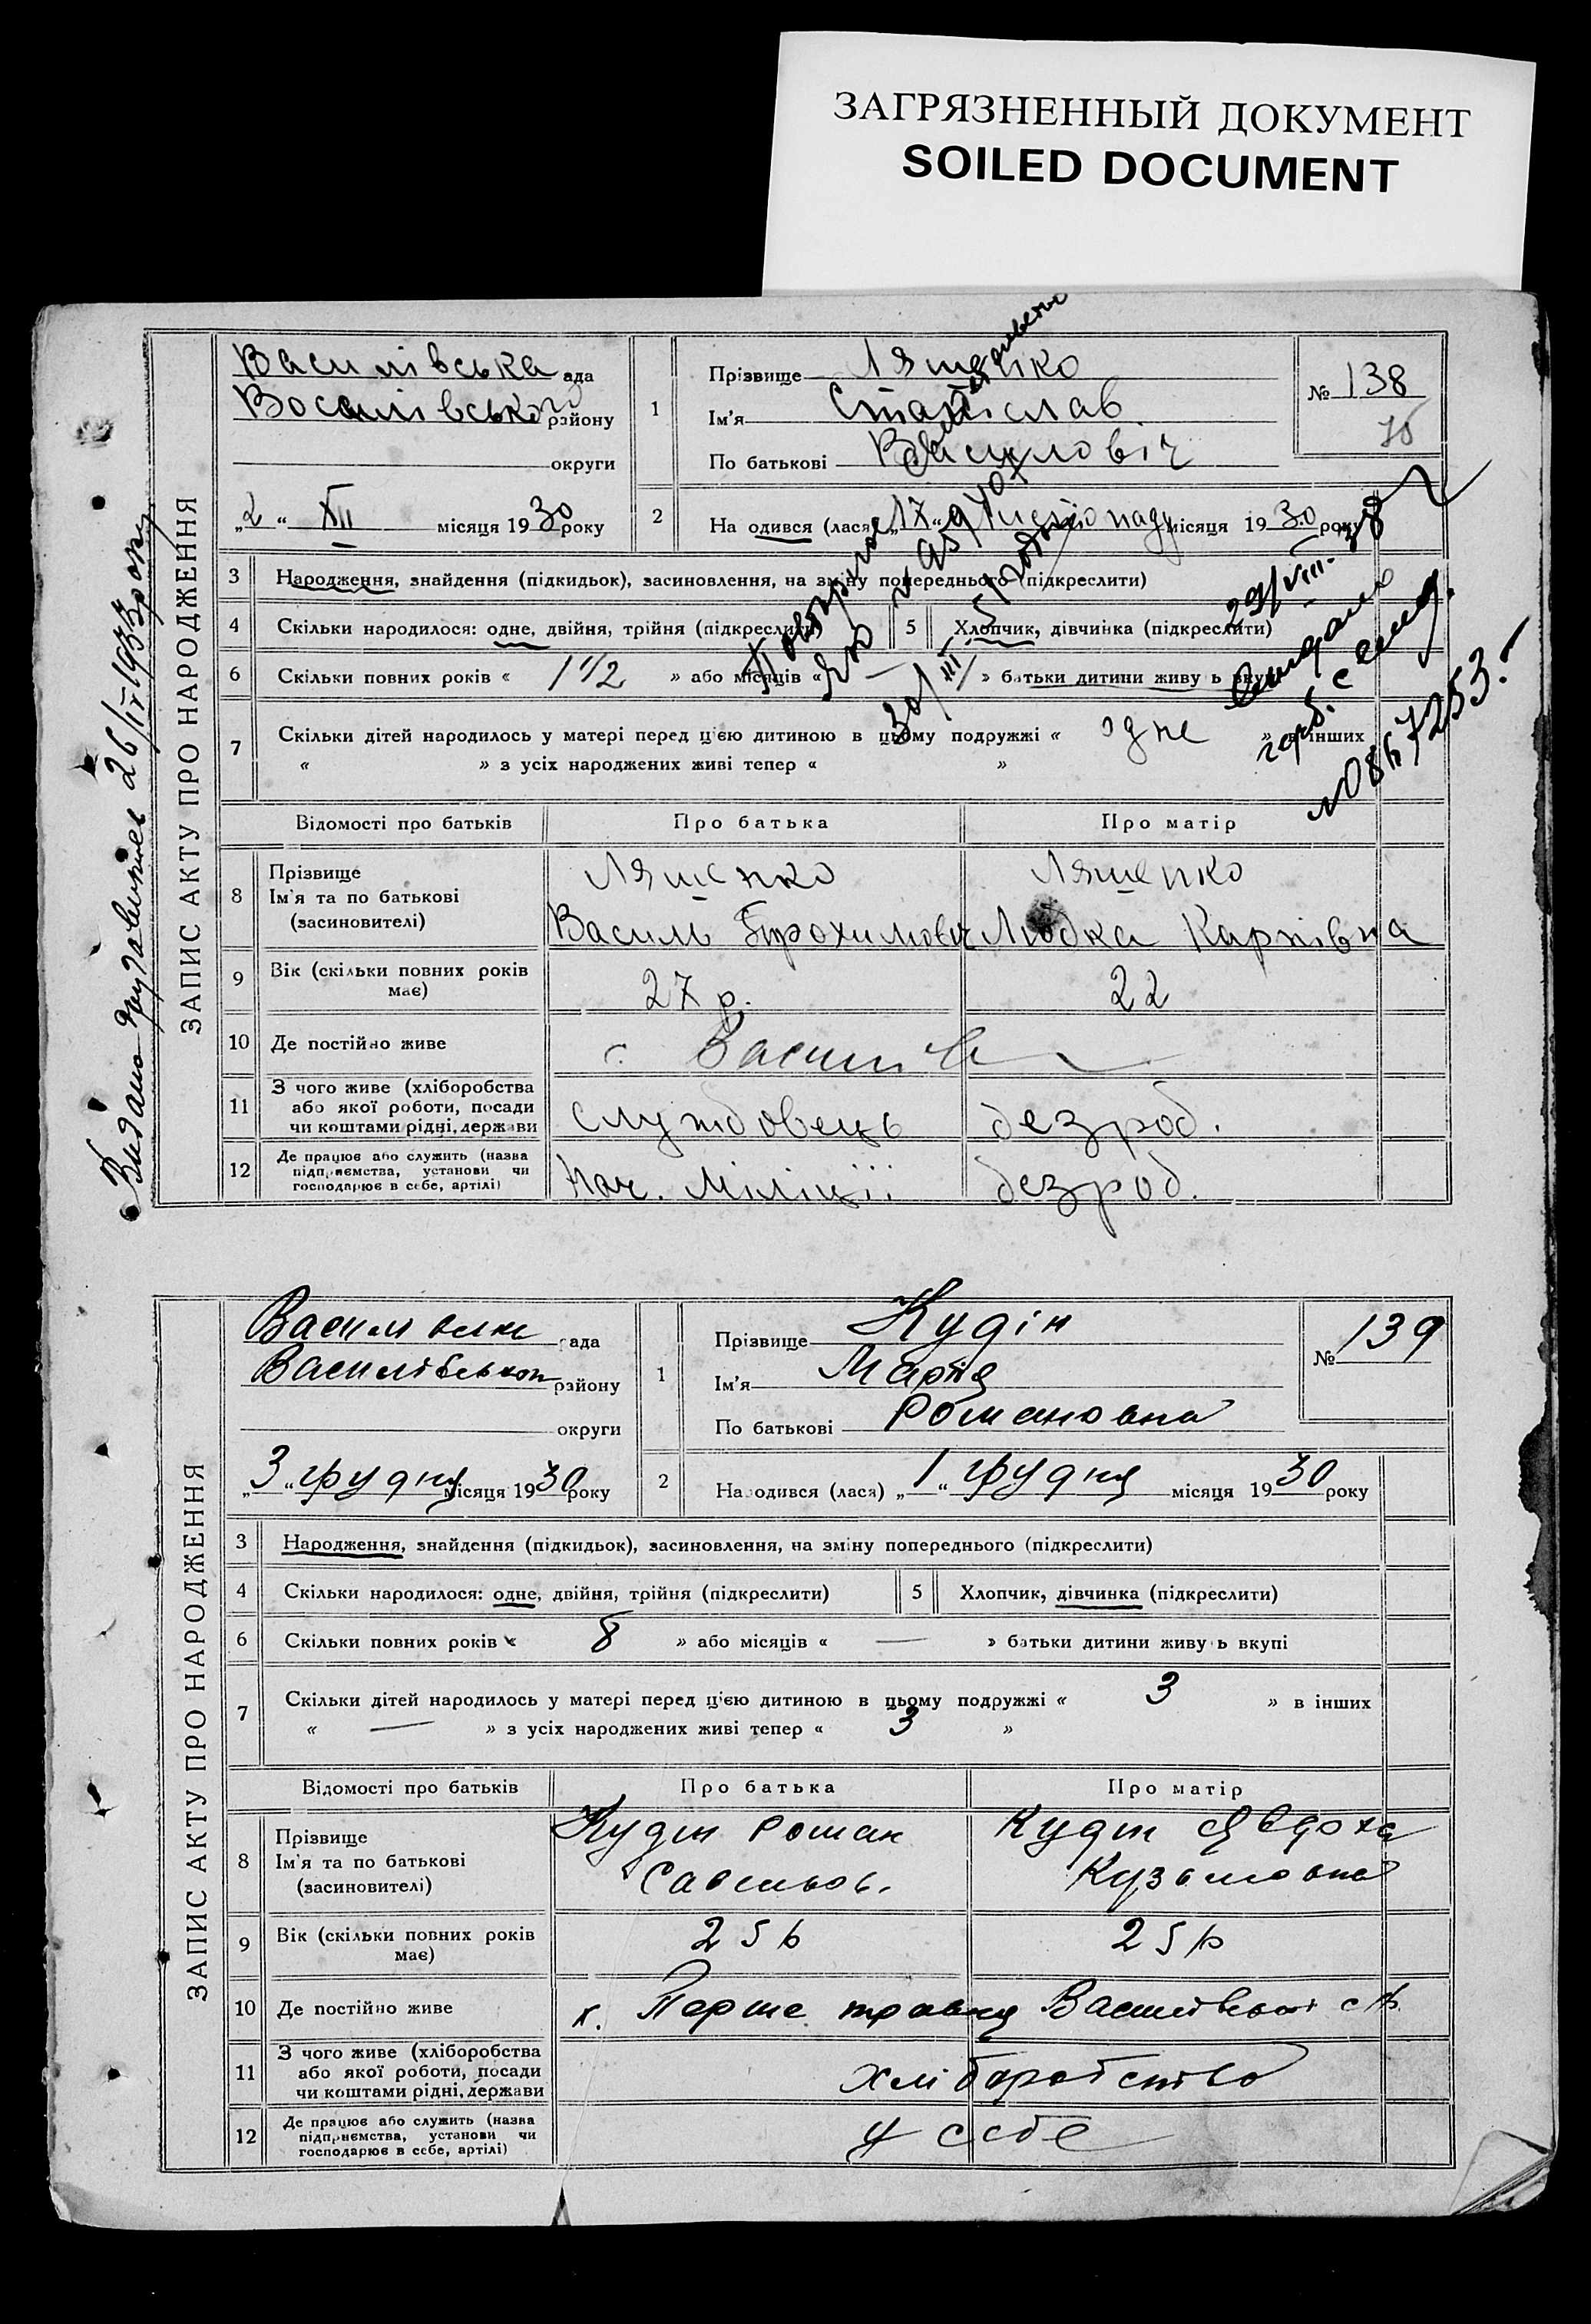 ЗАГРЯЗНЕННЫЙ ДОКУМЕНТ
SOILED DOCUMENT
ЗАПИС АКТУ ПРО НАРОДЖЕННЯ
Видано 26/IV 1933 року
Василівська рада
Василівського району
округи
„2“ XII місяця 1930 року
1
Прізвище Ляшенко
Ім'я Станіслав
По батькові Василовіч
№ 138
2
Народився (лася) „17“ місяця 1930 року
3 Народження, знайдення (підкидьок), засиновлення, на зміну попереднього (підкреслити)
4 Скільки народилося: одне, двійня, трійня (підкреслити)
5 Хлопчик, дівчинка (підкреслити)
6 Скільки повних років « 1 1/2 » або місяців « — » батьки дитини живуть вкупі
7 Скільки дітей народилось у матері перед цією дитиною в цьому подружжі « одне » в інших
« » з усіх народжених живі тепер « »
29/VIII-38
30/III
Відомості про батьків
Про батька
Про матір
8 Прізвище
Ім'я та по батькові
(засиновителі)
Ляшенко
Василь Трохимович
Ляшенко
Любка Карпівна
9 Вік (скільки повних років має)
27 р.
22
10 Де постійно живе
с. Василів
11 З чого живе (хліборобства
або якої роботи, посади
чи коштами рідні, держави
службовець
безроб.
12 Де працює або служить (назва
підприємства, установи чи
господарює в себе, артілі)
Нач. Міліції
безроб.
ЗАПИС АКТУ ПРО НАРОДЖЕННЯ
рада
району
округи
„3“ грудня місяця 1930 року
1
Прізвище Кудін
Ім'я Марія
По батькові Романовна
№ 139
2
Народився (лася) „1“ грудня місяця 1930 року
3 Народження, знайдення (підкидьок), засиновлення, на зміну попереднього (підкреслити)
4 Скільки народилося: одне, двійня, трійня (підкреслити)
5 Хлопчик, дівчинка (підкреслити)
6 Скільки повних років « 8 » або місяців « — » батьки дитини живуть вкупі
7 Скільки дітей народилось у матері перед цією дитиною в цьому подружжі « 3 » в інших
« — » з усіх народжених живі тепер « 3 »
Відомості про батьків
Про батька
Про матір
8 Прізвище
Ім'я та по батькові
(засиновителі)
Кудін Роман
Кудін Явдоха
Кузьмовна
9 Вік (скільки повних років має)
25 р
25 р
10 Де постійно живе
х. Перше травня
11 З чого живе (хліборобства
або якої роботи, посади
чи коштами рідні, держави
хліборобство
12 Де працює або служить (назва
підприємства, установи чи
господарює в себе, артілі)
у себе